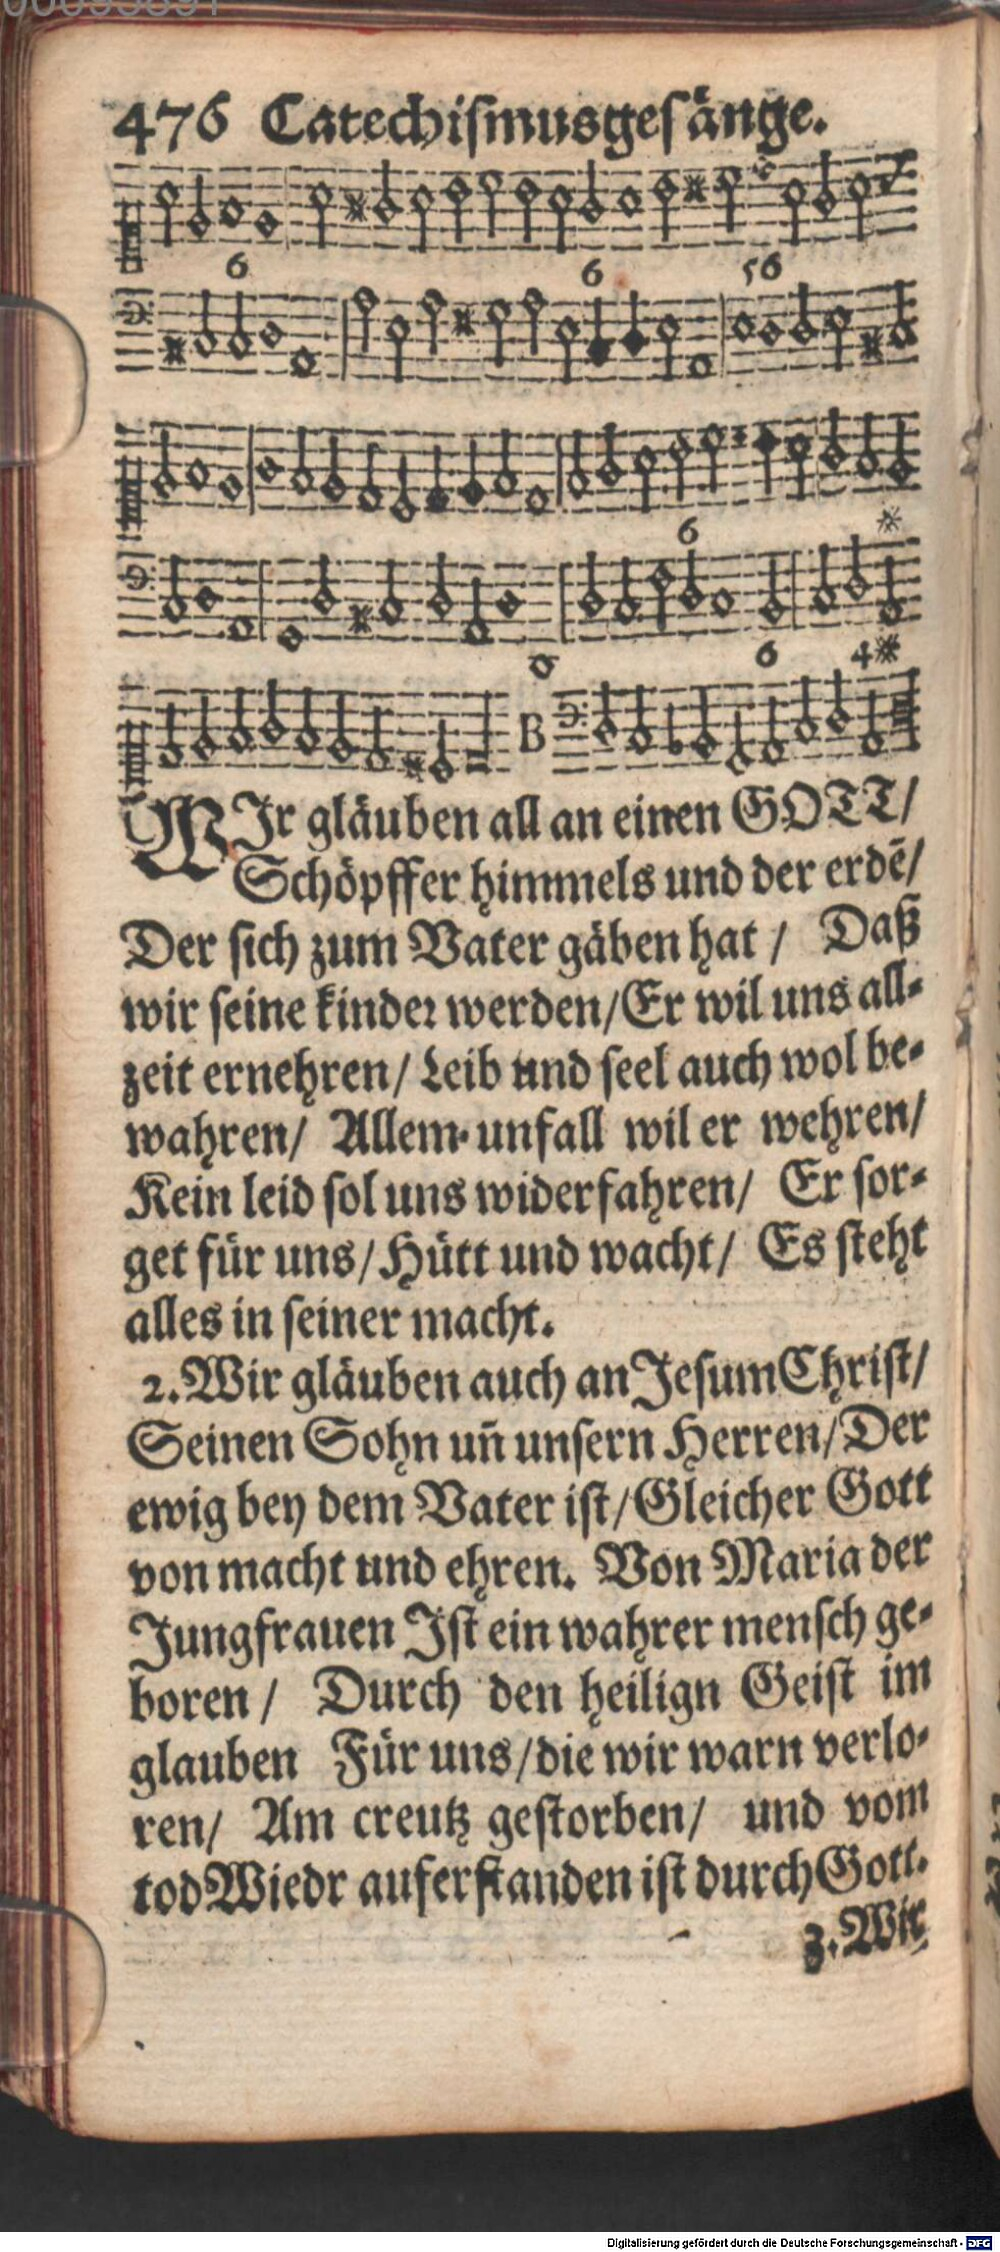 476 Catechismusgesänge.
6 6 56
6
6 4
B
WIr gläuben all an einen GOTT/
Schöpffer himmels und der erdē/
Der sich zum Vater gäben hat / Daß
wir seine kinder werden/Er wil uns all-
zeit ernehren/ Leib und seel auch wol be-
wahren/ Allem unfall wil er wehren/
Kein leid sol uns widerfahren/ Er sor-
get für uns/Hütt und wacht/ Es steht
alles in seiner macht.
2. Wir gläuben auch an Jesum Christ/
Seinen Sohn un̄ unsern Herren/Der
ewig bey dem Vater ist/Gleicher Gott
von macht und ehren. Von Maria der
Jungfrauen Ist ein wahrer mensch ge-
boren/ Durch den heilign Geist im
glauben Für uns/die wir warn verlo-
ren/ Am creutz gestorben/ und vom
tod Wiedr auferstanden ist durch Gott.
3. Wir
Digitalisierung gefördert durch die Deutsche Forschungsgemeinschaft - DFG